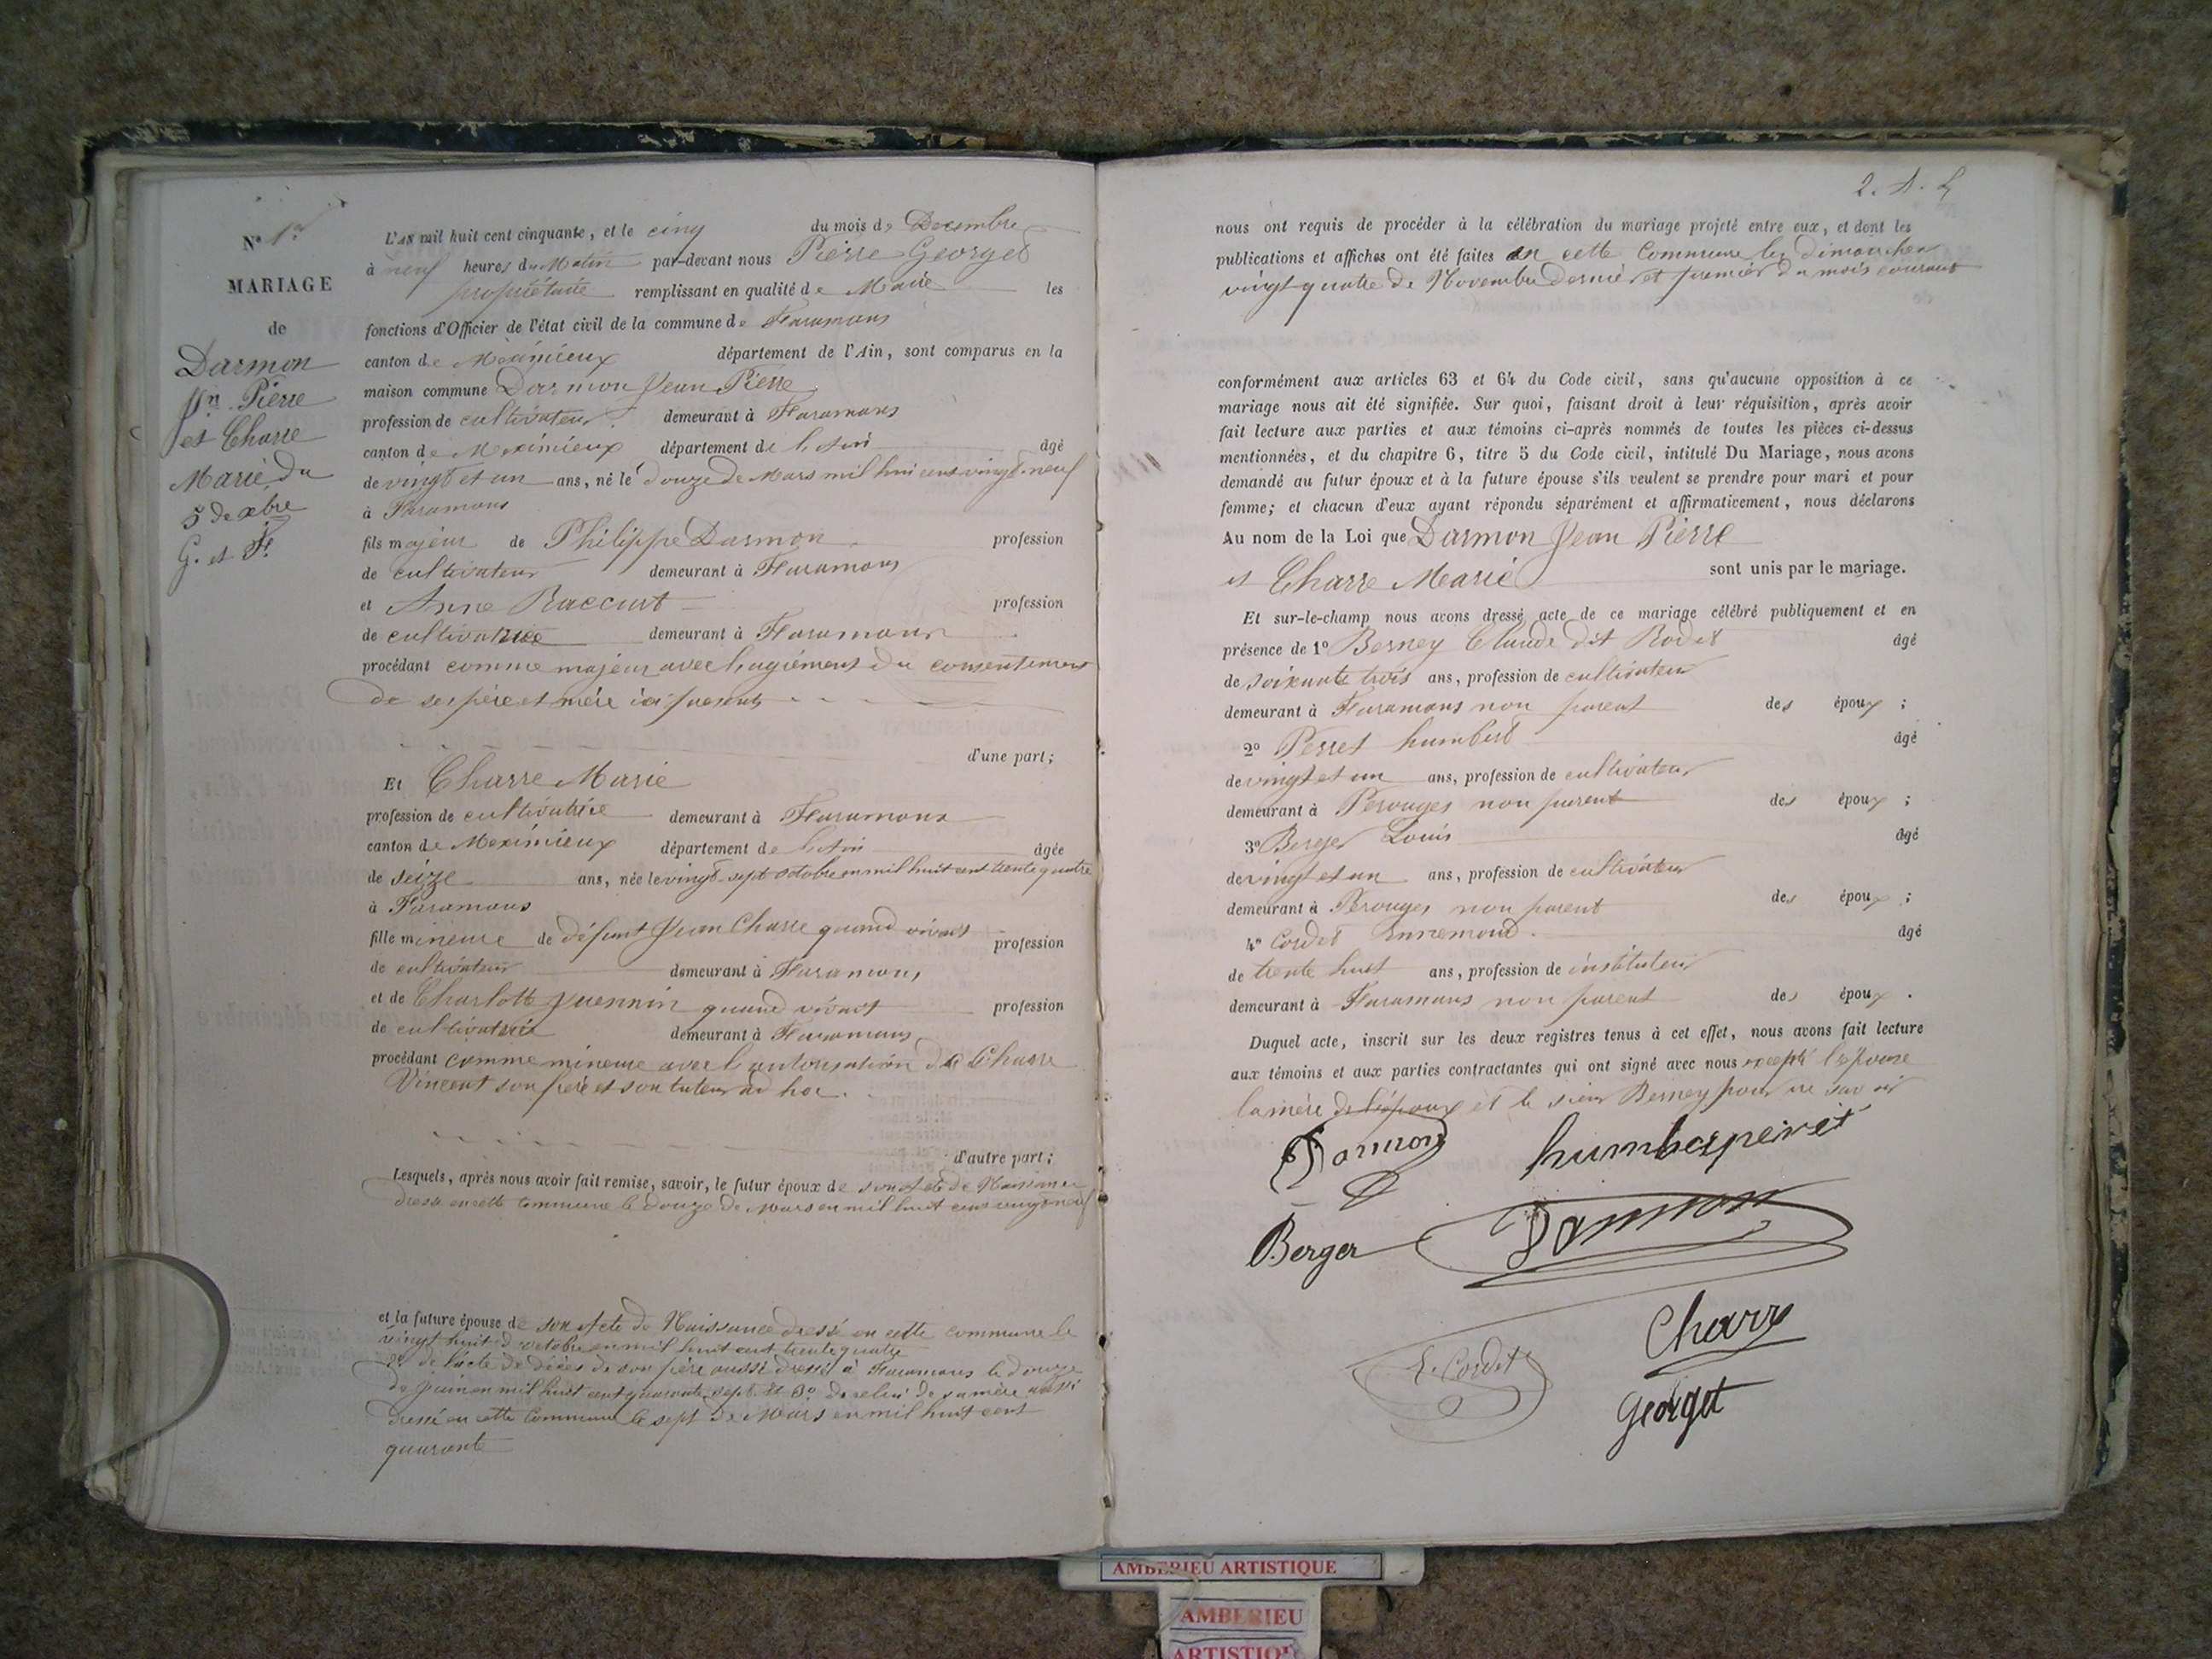 N° 1er
MARIAGE
de
Darmon
Jn Pierre
et Charre
Marie du
5 de xbre
G. et F.
L'AN mil huit cent cinquante, et le cinq du mois de Decembre
à neuf heures du Matin par-devant nous Pierre Georget
propriétaire remplissant en qualité de Maire les
fonctions d'Officier de l'état civil de la commune de Faramans
canton de Méximieux département de l'Ain, sont comparus en la
maison commune Darmon Jean Pierre
profession de cultivateur demeurant à Faramans
canton de Meximieux département de l'Ain âgé
de vingt et un ans, né le douze de Mars mil hui cent vingt-neuf
à Faramans
fils majeur de Philippe Darmon profession
de cultivateur demeurant à Faramans
et Anne Raccurt profession
de cultivatrice demeurant à Faramans
procédant comme majeur avec l'agrément du consentement
de ses père et mère ici presents
d'une part;
Et Charre Marie
profession de cultivatrice demeurant à Faramans
canton de Meximieux département de l'Ain âgée
de seize ans, née le vingt-sept octobre en mil huit cent trente quatre
à Faramans
fille mineure de défunt Jean Charre quand vivait profession
de cultivateur demeurant à Faramans
et de Charlotte Juennin quand vivait profession
de cultivatrice demeurant à Faramans
procédant comme mineure avec l'autorisation de Charre
Vincent son frère et son tuteur ad hoc.
d'autre part;
Lesquels, après nous avoir fait remise, savoir, le futur époux de son Acte de Naissance
dressé en cette commune le douze de Mars en mil huit cent vingt neuf
et la future épouse de son Acte de Naissance dressé en cette commune le
vingt huit d'octobre en mil huit cent trente quatre
2° de l'acte de décès de son père aussi dressé à Faramans le douze
de juin en mil huit cent quarante sept et 3° de celui de sa mère aussi
dressé en cette Commune le sept de Mars en mil huit cent
quarante
nous ont requis de procéder à la célébration du mariage projeté entre eux, et dont les
publications et affiches ont été faites en cette Commune les dimanches
vingt quatre de Novembre dernier et premier du mois courant
conformément aux articles 63 et 64 du Code civil, sans qu'aucune opposition à ce
mariage nous ait été signifiée. Sur quoi, faisant droit à leur réquisition, après avoir
fait lecture aux parties et aux témoins ci-après nommés de toutes les pièces ci-dessus
mentionnées, et du chapitre 6, titre 5 du Code civil, intitulé Du Mariage, nous avons
demandé au futur époux et à la future épouse s'ils veulent se prendre pour mari et pour
femme; et chacun d'eux ayant répondu séparément et affirmativement, nous déclarons
Au nom de la Loi que Darmon Jean Pierre
et Charre Marie sont unis par le mariage.
Et sur-le-champ nous avons dressé acte de ce mariage célébré publiquement et en
présence de 1° Berney Claude dit Rodet âgé
de soixante trois ans, profession de cultivateur
demeurant à Faramans non parent des époux ;
2° Perret humbert âgé
de vingt et un ans, profession de cultivateur
demeurant à Perouges non parent des époux ;
3° Berger Louis âgé
de vingt et un ans, profession de cultivateur
demeurant à Perouges non parent des époux ;
4° Cordet Ennemond âgé
de trente huit ans, profession de instituteur
demeurant à Faramans non parent des époux.
Duquel acte, inscrit sur les deux registres tenus à cet effet, nous avons fait lecture
aux témoins et aux parties contractantes qui ont signé avec nous excepté l'épouse
la mère de l'époux et le sieur Berney pour ne savoir
Darmon
humber perret
Berger
Darmon
Charre
E. Cordet
Georget
AMBERIEU ARTISTIQUE
AMBERIEU
ARTISTIQ